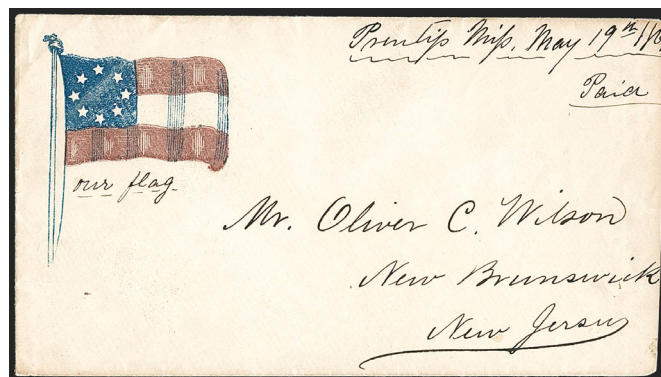 Prentiss Miss. May 19th
Paid
our flag.
Mr. Oliver C. Wilson
New Brunswick
New Jersey